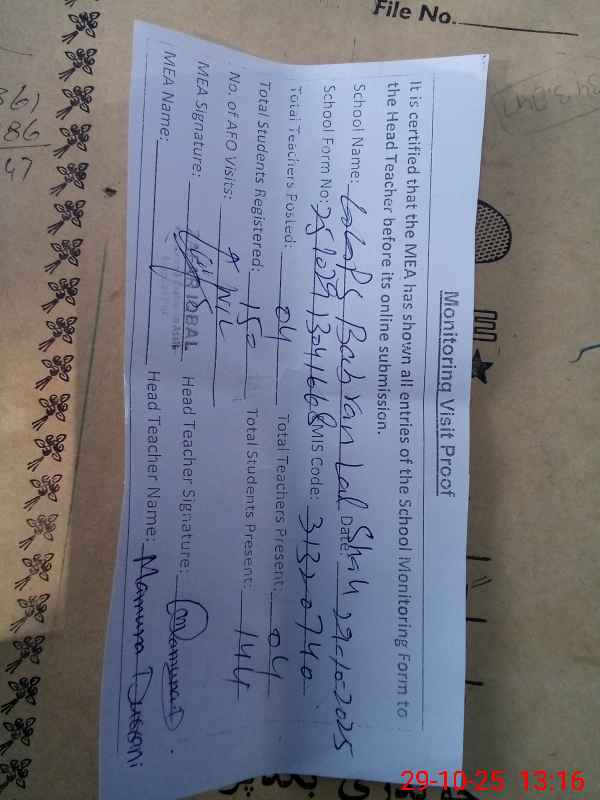 File No.
Monitoring Visit Proof
It is certified that the MEA has shown all entries of the School Monitoring Form to
the Head Teacher before its online submission.
School Name: GGPS Babran Lal Shah Date: 29-10-2025
School Form No: 251029130416 68 EMIS Code: 31320740
Total Teachers Posted: 04 Total Teachers Present: 04
Total Students Registered: 150 Total Students Present: 144
No. of AEO Visits: NIL
MEA Signature: Head Teacher Signature:
MEA Name: Head Teacher Name: Mamuna Durrani
IQBAL
361
86
47
29-10-25 13:16